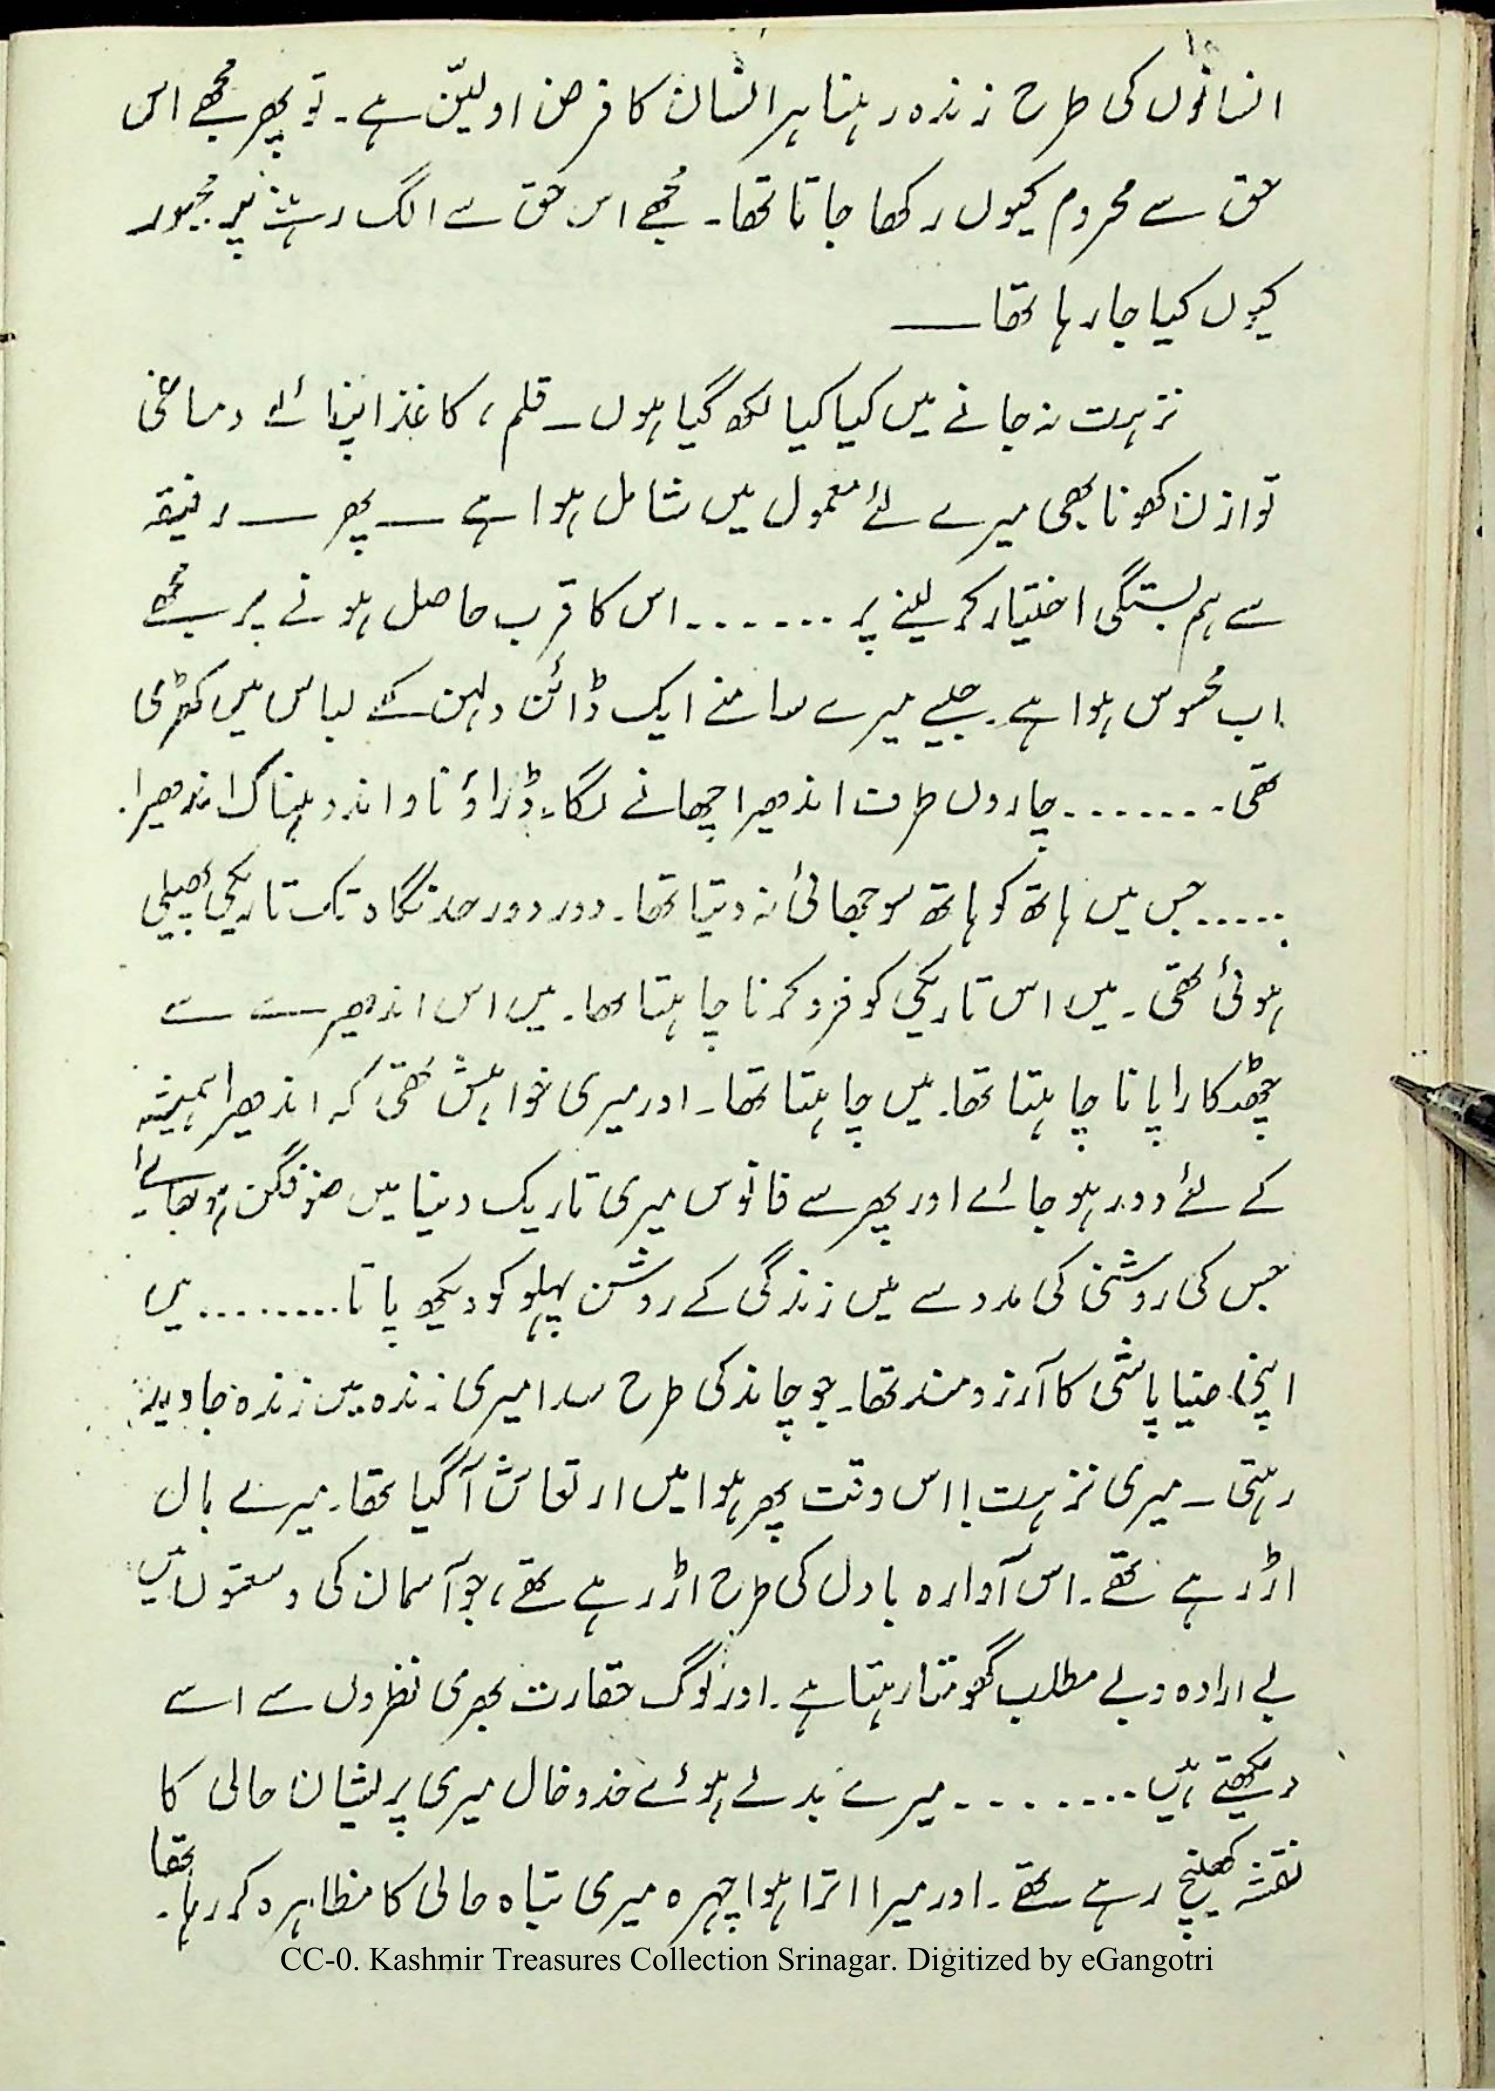 انسانوں کی طرح زندہ رہنا ہر انسان کا فرض اولیّن ہے۔ تو پھر مجھے اس
حق سے محروم کیوں رکھا جاتا تھا۔ مجھے اس حق سے الگ رہنے پر مجبور
کیوں کیا جا رہا تھا ــــ
نزہت نہ جانے میں کیا کیا لکھ گیا ہوں ـ قلم، کاغذ اپنائے دماغی
توازن کھونا بھی میرے لئے معمول میں شامل ہوا ہے ــ پھر ــ رفیقہ
سے ہم بستگی اختیار کر لینے پر ....... اس کا قرب حاصل ہونے پر مجھے
اب محسوس ہوا ہے۔ جیسے میرے سامنے ایک ڈائن دلہن کے لباس میں کھڑی
تھی۔ ....... چاروں طرف اندھیرا چھانے لگا۔ ڈراؤنا و اندوہناک اندھیرا۔
..... جس میں ہاتھ کو ہاتھ سوجھائی نہ دیتا تھا۔ دور دور حد نگاہ تک تاریکی پھیلی
ہوئی تھی۔ میں اس تاریکی کو فرو کرنا چاہتا تھا۔ میں اس اندھیرے سے
چھٹکارا پانا چاہتا تھا۔ میں چاہتا تھا۔ اور میری خواہش تھی کہ اندھیرا ہمیشہ
کے لئے دور ہو جائے اور پھر سے فانوس میری تاریک دنیا میں ضوفگن ہو جائے
جس کی روشنی کی مدد سے میں زندگی کے روشن پہلو کو دیکھ پاتا ........ میں
اپنی ضیا پاشی کا آرزومند تھا۔ جو چاند کی طرح سدا میری زندہ میں زندہ جاوید
رہتی ـ میری نزہت! اس وقت پھر ہوا میں ارتعاش آ گیا تھا۔ میرے بال
اڑ رہے تھے۔ اس آوارہ بادل کی طرح اڑ رہے تھے، جو آسمان کی وسعتوں میں
بے ارادہ و بے مطلب گھومتا رہتا ہے۔ اور لوگ حقارت بھری نظروں سے اسے
دیکھتے ہیں ........ میرے بدلے ہوئے خدوخال میری پریشان حالی کا
نقشہ کھینچ رہے تھے۔ اور میرا اترا ہوا چہرہ میری تباہ حالی کا مظاہرہ کر رہا تھا۔
CC-0. Kashmir Treasures Collection Srinagar. Digitized by eGangotri